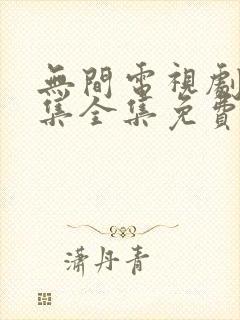 無間電視劇
集全集免費
瀟丹青